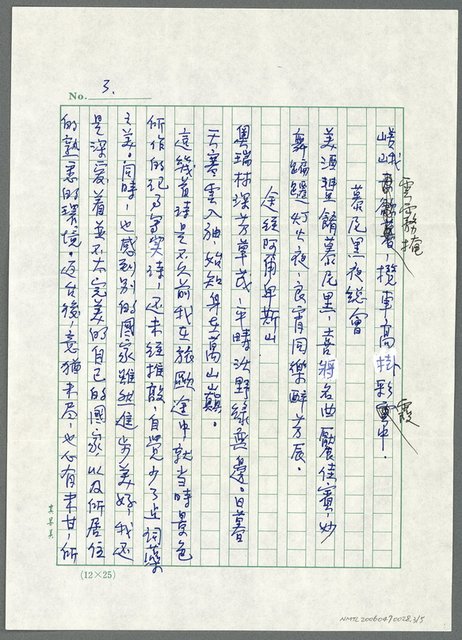 No. 3.
霧掩，攬車高掛彩霞中。
慕尼黑夜總會
美酒豐餚慕尼黑，喜將名曲饗佳賓，妙
舞蹁躚灯火夜，良宵同樂醉芳辰。
途經阿爾卑斯山
奧瑞林深芳草茂，平疇沃野綠無邊。日暮
天寒雲入袖，始知身在萬山巔。
這幾首詩是不久前我在旅歐途中就當時景色
所作的記事寫實詩，还未經推敲，自覺少了点詞藻
之美。同時，也感到別的國家雖然進步美好，我还
是深愛着並不太完美的自己的國家，以及所居住
的熟悉的環境。返台後，意猶未尽，也心有未甘，所
(12×25)
NMTL20060470028 3/5